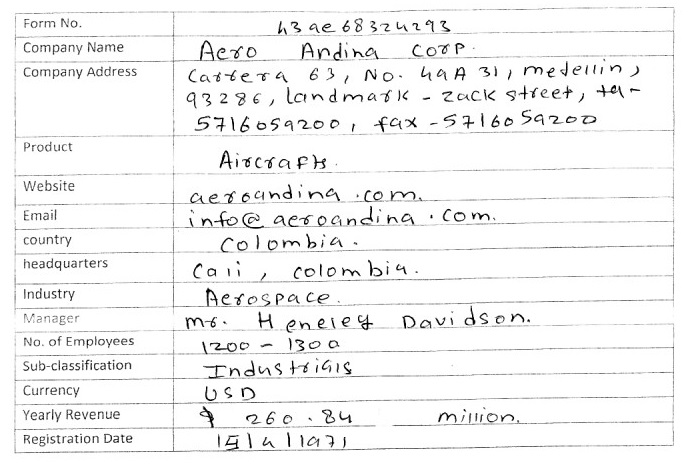 Form No. h3ae68324293
Company Name Aero Andina Corp.
Company Address Carrera 63, No. 49A 31, medellin,
93286, landmark - zack street, tel-
5716059200, fax -5716059200
Product Aircrafts.
Website aeroandina.com.
Email info@aeroandina.com.
country Colombia.
headquarters Cali, colombia.
Industry Aerospace.
Manager mr. Heneley Davidson.
No. of Employees 1200 - 1300
Sub-classification Industrials
Currency USD
Yearly Revenue $ 260.84 million.
Registration Date